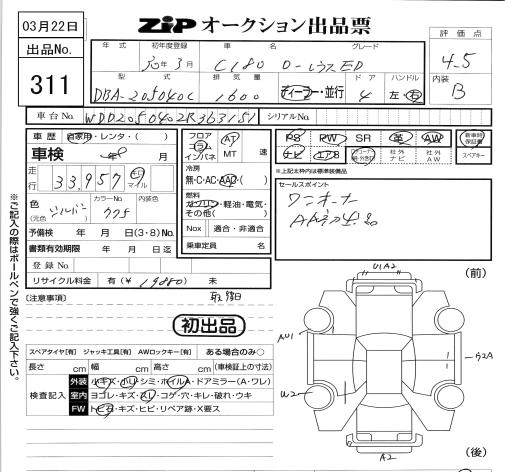 03月22日
出品No.
311
ZiP オークション出品票
評価点
4.5
内装
B
年式 初年度登録 車名 グレード
30年3月 C180 ローレウスED
型式 排気量 ドア ハンドル
DBA-205040C 1600 ディーラー・並行 4 左・右
車台No. WDD2050402R363151 シリアルNo.
車歴 自家用・レンタ・( )
車検 年 月
走行 33,957 km マイル
色(元色) シルバー カラーNo. 内装色
予備検 年 月 日(3・8)No.
書類有効期限 年 月 日迄
登録No.
リサイクル料金 有(¥ 19880) 未
フロア コラム インパネ AT MT 速
冷房
無・C・AC・AAC・( )
燃料
ガソリン・軽油・電気・その他( )
Nox 適合・非適合
乗車定員 名
PS PW SR 革 AW 新車時保証書
ナビ エアB 社外ナビ 社外AW スペアキー
*上記太枠内は標準装備品
セールスポイント
ワンオーナー
※ご記入の際はボールペンで強くご記入下さい。
[注意事項]
初出品
スペアタイヤ[有] ジャッキ工具[有] AWロックキー[有] ある場合のみ○
長さ cm 幅 cm 高さ cm (車検証上の寸法)
検査記入
外装 小キズ・小U・シミ・ホイルA・ドアミラー(A・ワレ)
室内 ヨゴレ・キズ・スレ・コゲ・穴・キレ・破れ・ウキ
FW トビ石・キズ・ヒビ・リペア跡・X要ス
(前)
U1A2
AU1
U2A
W2
A2
(後)